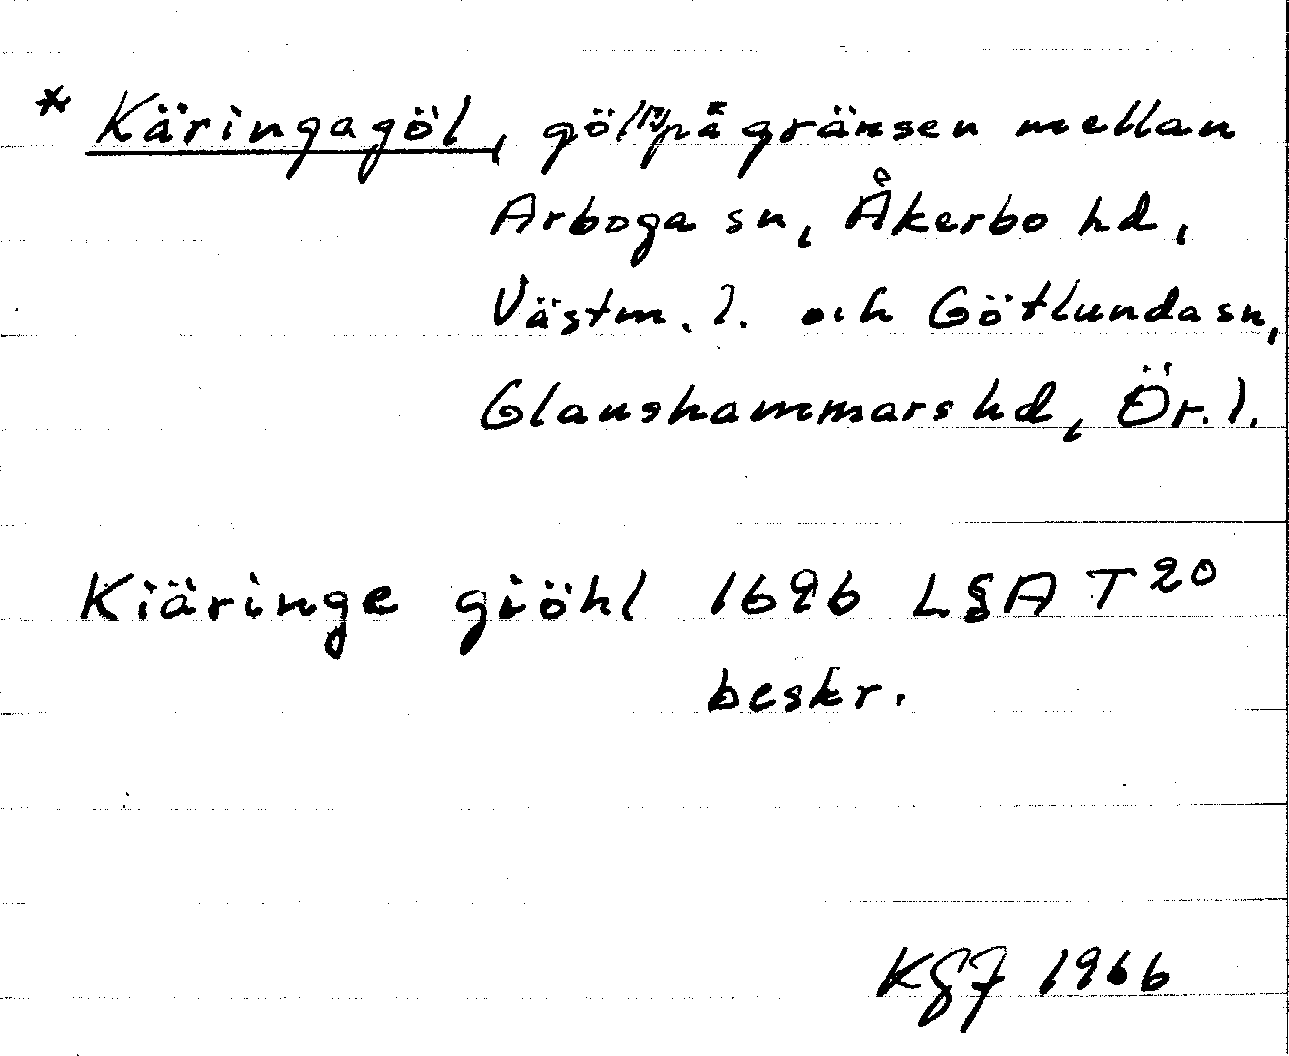 * Käringagöl, göl(?) på gränsen mellan
Arboga sn, Åkerbo hd,
Västm. l. och Götlunda sn,
Glanshammars hd, Ör. l.
Kiäringe giöhl 1696 LSA T 20
beskr.
1966